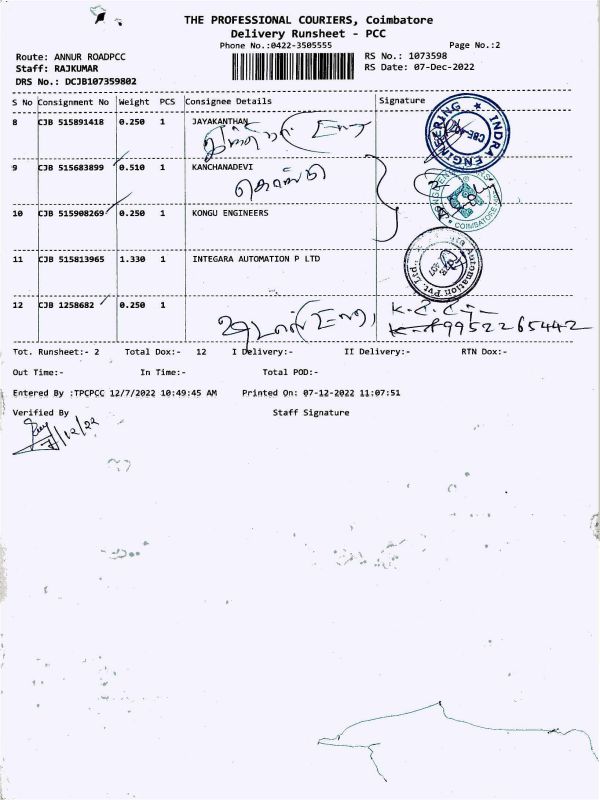 THE PROFESSIONAL COURIERS, Coimbatore
Delivery Runsheet - PCC
Phone No.:0422-3505555 Page No.:2
Route: ANNUR ROADPCC RS No.: 1073598
Staff: RAJKUMAR RS Date: 07-Dec-2022
DRS No.: DCJB107359802
S No Consignment No Weight PCS Consignee Details Signature
8 CJB 515891418 0.250 1 JAYAKANTHAN
INDRA ENGINEERING
9 CJB 515683899 0.510 1 KANCHANADEVI
10 CJB 515908269 0.250 1 KONGU ENGINEERS
COIMBATORE
11 CJB 515813965 1.330 1 INTEGARA AUTOMATION P LTD
Automation Pvt. Ltd.
12 CJB 1258682 0.250 1
9952265442
Tot. Runsheet:- 2 Total Dox:- 12 I Delivery:- II Delivery:- RTN Dox:-
Out Time:- In Time:- Total POD:-
Entered By :TPCPCC 12/7/2022 10:49:45 AM Printed On: 07-12-2022 11:07:51
Verified By Staff Signature
7/12/22